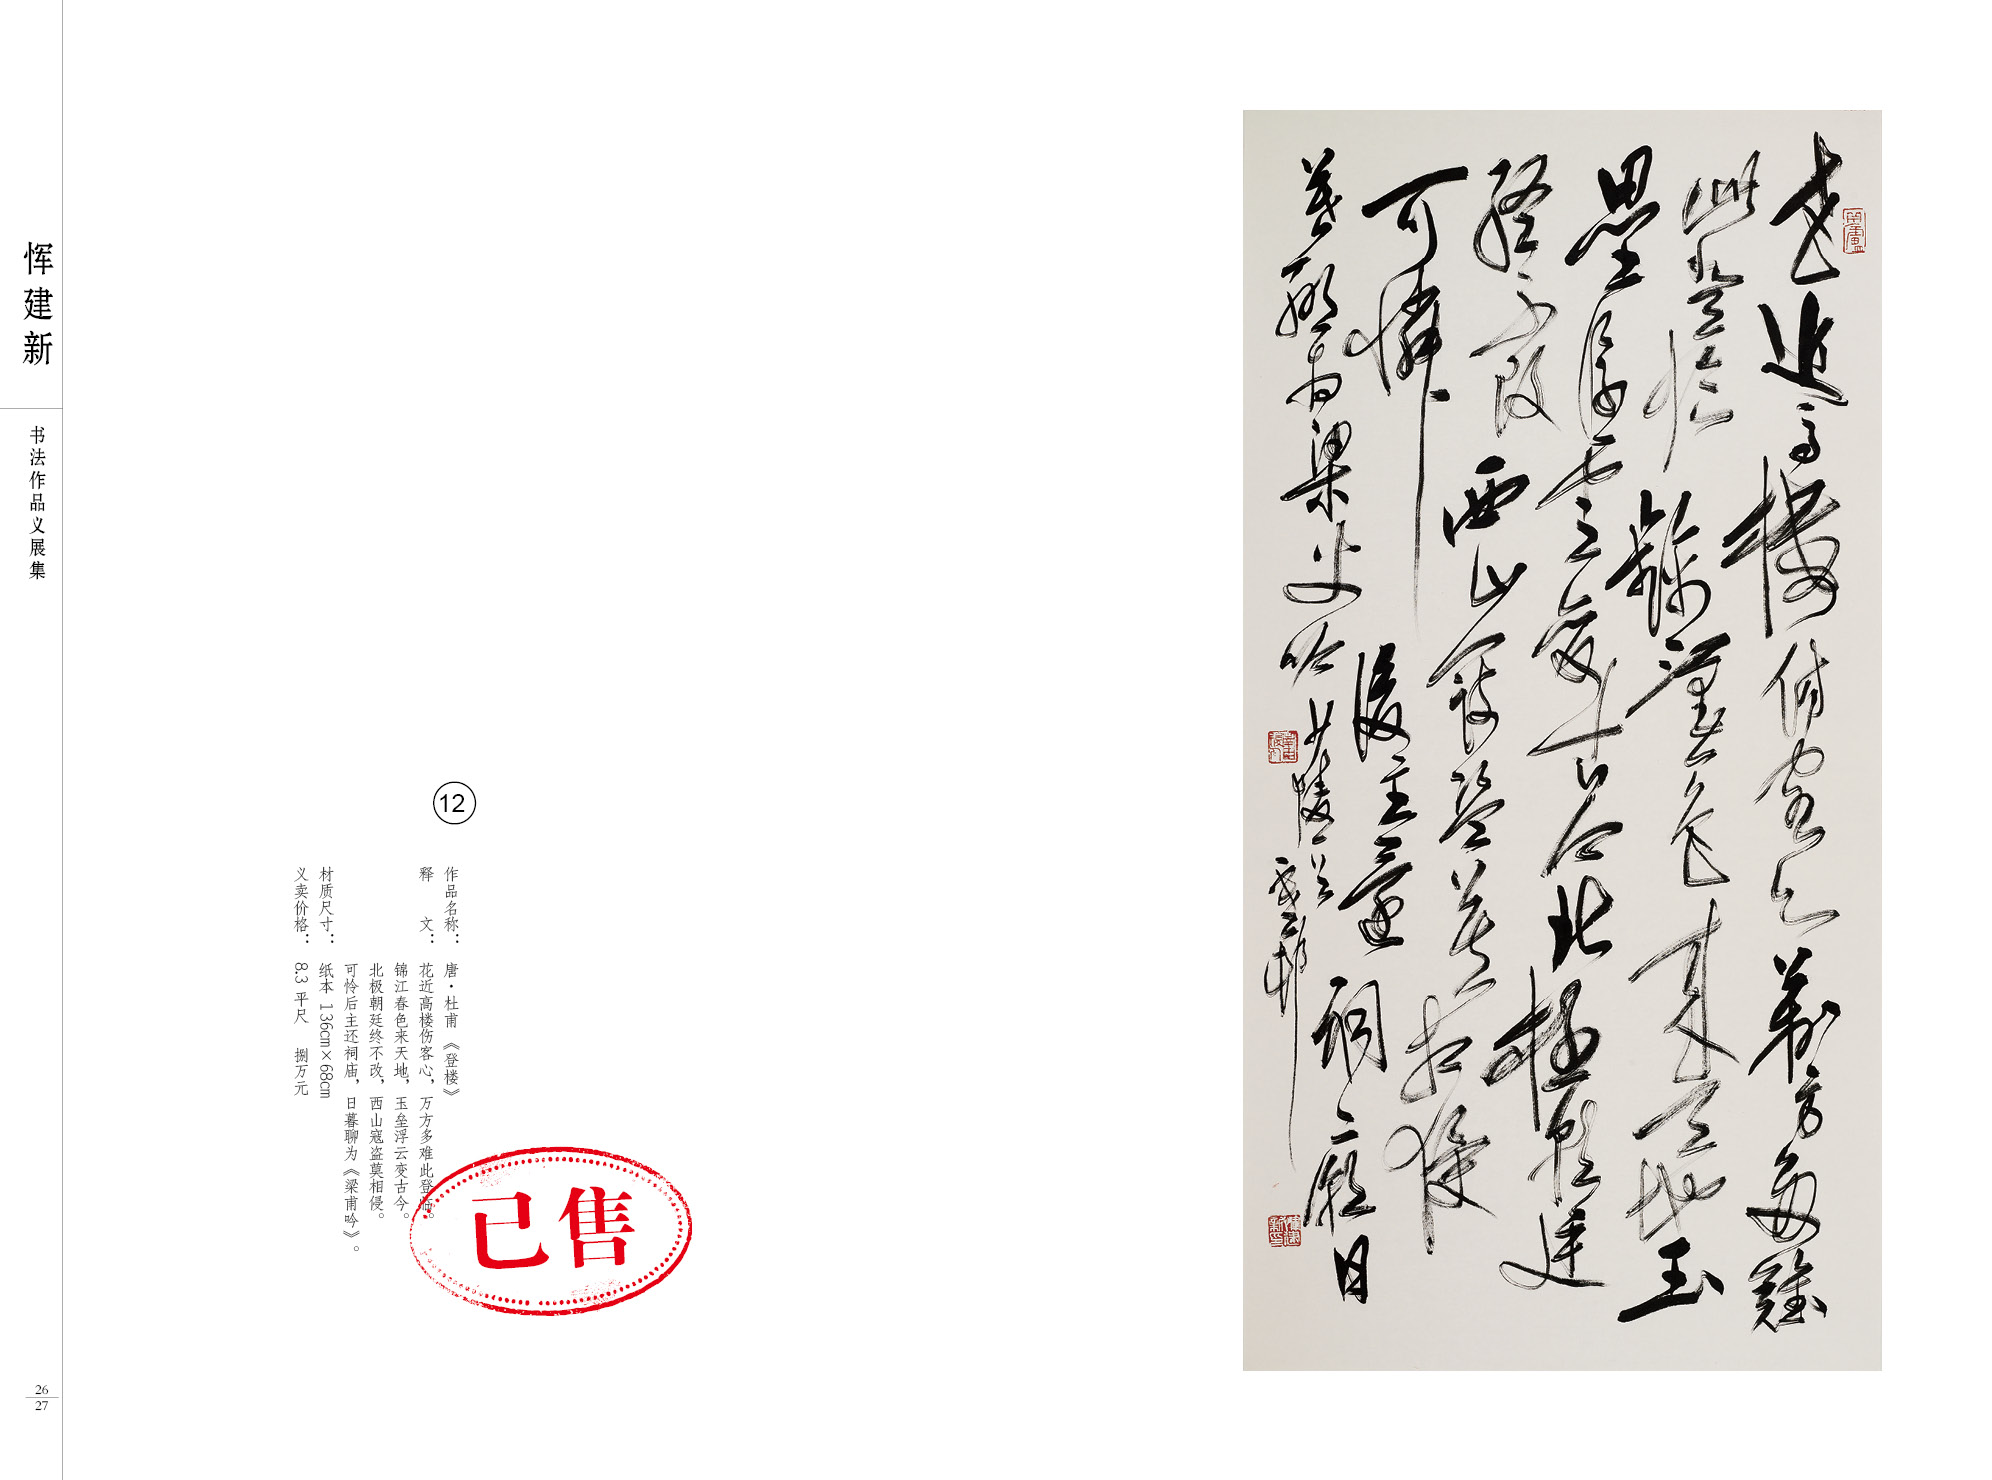 恽建新
书法作品义展集
12
作品名称： 唐·杜甫《登楼》
释 文： 花近高楼伤客心，万方多难此登临。
锦江春色来天地，玉垒浮云变古今。
北极朝廷终不改，西山寇盗莫相侵。
可怜后主还祠庙，日暮聊为《梁甫吟》。
材质尺寸： 纸本 136cm×68cm
义卖价格： 8.3 平尺 捌万元
已售
花近高樓傷客心萬方多難
此登臨錦江春色來天地玉
壘浮雲變古今北極朝廷
終不改西山寇盜莫相侵
可憐後主還祠廟日
暮聊為梁父吟
26
27